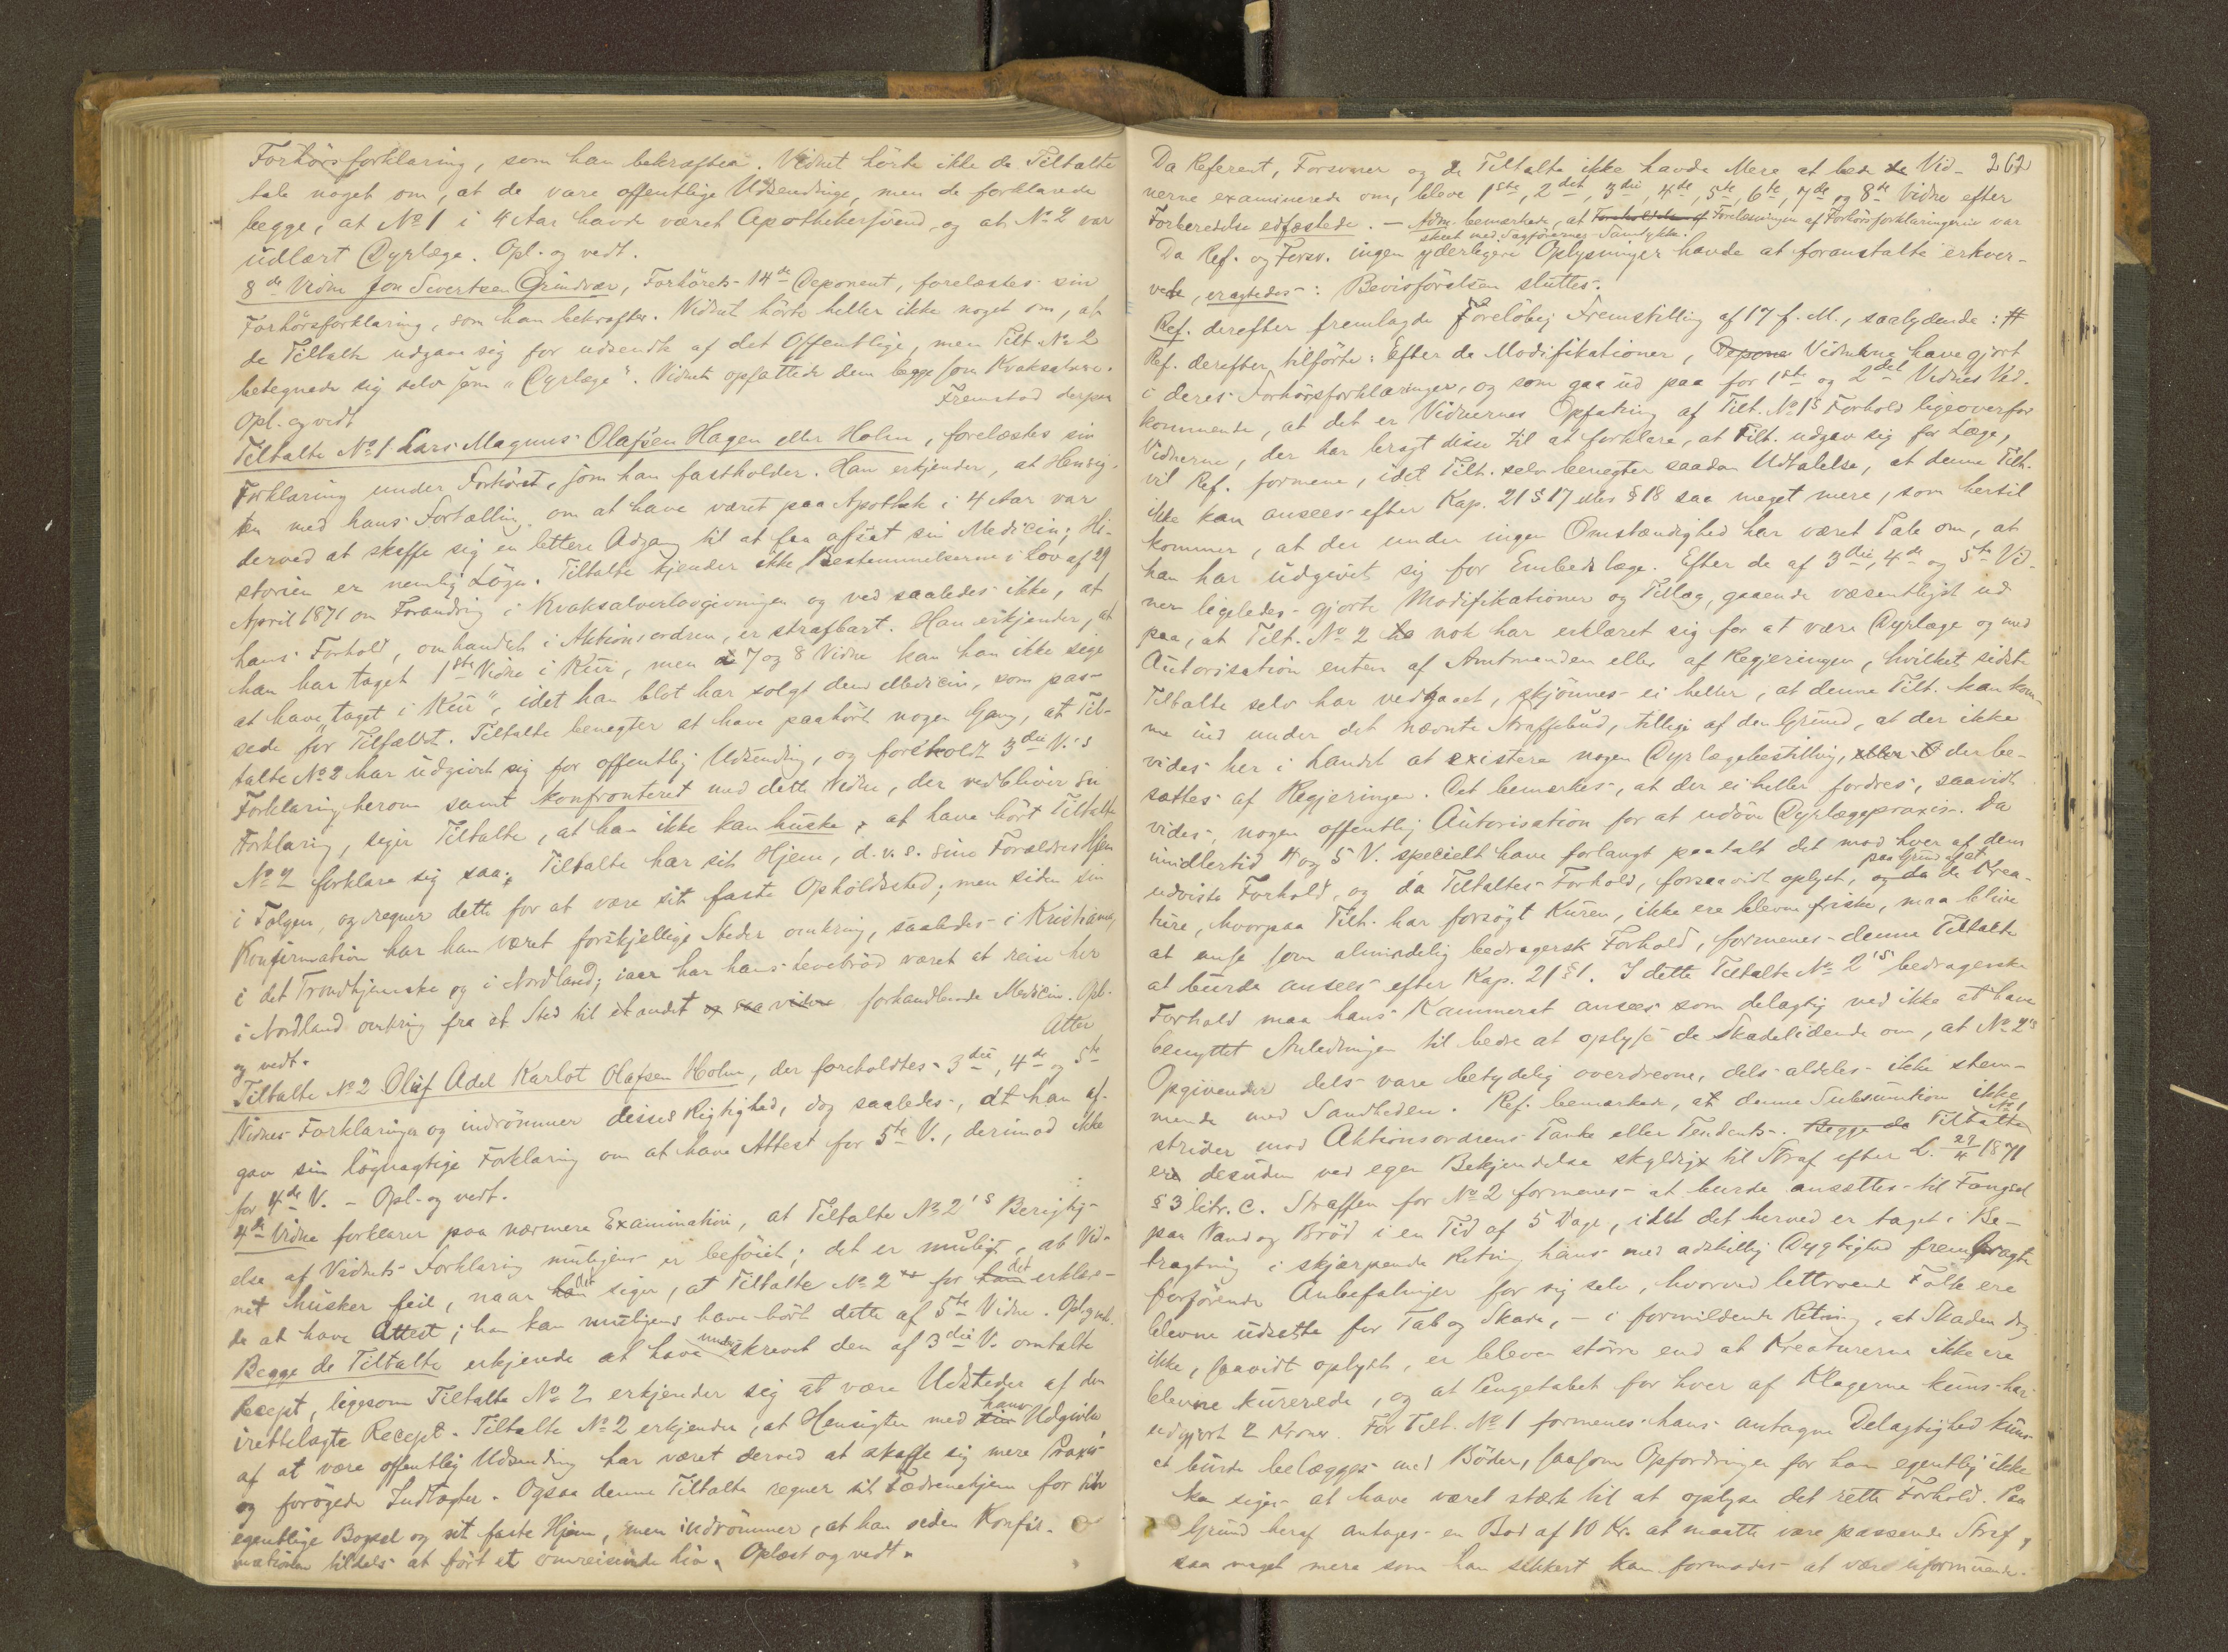 Forhörsforklaring, som han bekræfter. Vidnet hörte ikke de Tiltalte
tale noget om, at de vare offentlige Udsendinge, men de forklarede
begge, at No 1 i 4 Aar havde været Apothekersvend, og at No 2 var
udlært Dyrlæge. Opl. og vedt.
8de Vidne Jon Sivertsen Grindvær, Forhörets 14de Deponent, forelæstes sin
Forhörsforklaring, som han bekræfter. Vidnet hörte heller ikke noget om, at
de Tiltalte udgave sig for udsendte af det Offentlige, men Tilt No 2
betegnede sig selv som "Dyrlæge". Vidnet opfattede dem begge som Kvaksalvere.
Opl. og vedt Fremstod derpaa
Tiltalte No 1 Lars Magnus Olafsen Hagen eller Holm, forelæstes sin
Forklaring under Forhöret, som han fastholder. Han erkjender, at Hensig-
ten med hans Fortælling om at have været paa Apothek i 4 Aar var
derved at skaffe sig en lettere Adgang til at faa afsat sin Medicin; Hi-
storien er nemlig Lögn. Tiltalte kjender ikke Bestemmelserne i Lov af 29
April 1871 om Forandring i Kvaksalverlovgivningen og ved saaledes ikke, at
hans Forhold, omhandlet i Aktionsordren, er strafbart. Han erkjender, at
han har taget 1ste Vidne i Kur, men 7 og 8 Vidne kan han ikke sige
at have taget i "Kur", idet han blot har solgt dem Medicin, som pas-
sede for Tilfældet. Tiltalte benegter at have paahört nogen Gang, at Til-
talte No 2 har udgivet sig for offentlig Udsending, og foreholdt 3die V.'s
Forklaring herom samt konfronteret med dette Vidne, der vedbliver sin
Forklaring, siger Tiltalte, at han ikke kan huske at have hört Tiltalte
No 2 forklare sig saa. Tiltalte har sit Hjem, d.v.s. sine Forældres Hjem
i Folgen, og regner dette for at være sit faste Opholdssted; men siden sin
Konfirmation har han været forskjellige Steder omkring, saaledes i Kristiania,
i det Trondhjemske og i Nordland; iaar har hans Levebröd været at reise her
i Nordland omkring fra et Sted til et andet og saa videre forhandlende Medicin. Opl.
og vedt. Atter
Tiltalte No 2 Oluf Adel Karlot Olafsen Holm, der foreholdtes 3die, 4de og 5te
Vidnes Forklaringer og indrömmer disses Rigtighed, dog saaledes, at han af-
gav sin lögnagtige Forklaring om at have Attest for 5te V., derimod ikke
for 4de V. – Opl. og vedt.
4de Vidne forklarer paa nærmere Examination, at Tiltalte No 2's Berigtig-
else af Vidnets Forklaring muligens er beföiet; det er muligt, at Vid-
net husker feil, naar det siger, at Tiltalte No 2 for det erklære-
de at have Attest; han kan muligens have hört dette af 5te Vidne. Opl. og vedt.
Begge de Tiltalte erkjende at have underskrevet den af 3die V. omtalte
Recept, ligesom Tiltalte No 2 erkjender sig at være Udsteder af den
irettelagte Recept. Tiltalte No 2 erkjender, at Hensigten med hans Udgivelse
af at være offentlig Udsending har været derved at skaffe sig mere Praxis
og forögede Indtægter. Ogsaa denne Tiltalte regner sit Fædrenehjem for sin
egentlige Bopæl og sit faste Hjem, men indrömmer, at han siden Konfir-
mationen tildels at fört et omreisende Liv. Oplæst og vedt.
Da Referent, Forsvarer og de Tiltalte ikke havde Mere at bede de Vid- 262
nerne examinerede om, bleve 1ste, 2det, 3die, 4de, 5te, 6te, 7de og 8de Vidne efter
Forberedelse edfæstede. – Adm. bemærkede, at Foreholdelse af Forelæsningen af Forhörsforklaringerne var
skeet med Sagförernes Samtykke.
Da Ref. og Forsv. ingen yderligere Oplysninger havde at foranstalte erhver-
vede, eragtedes: Bevisförelsen sluttes.
Ref. derefter fremlagde Forelöbig Fremstilling af 17 f. M., saalydende: #
Ref. derefter tilförte: Efter de Modifikationer, Vidnerne have gjort
i deres Forhörsforklaringer, og som gaa ud paa for 1ste og 2det Vidnes Ved-
kommende, at det er Vidnernes Opfatning af Tilt. No 1's Forhold ligeoverfor
Vidnerne, der har bragt disse til at forklare, at Tilt. udgav sig for Læge,
vil Ref. formene, idet Tilt. selv benegter saadan Udtalelse, at denne Tilt.
ikke kan ansees efter Kap. 21 § 17 eller § 18 saa meget mere, som hertil
kommer, at der under ingen Omstændighed har været Tale om, at
han har udgivet sig for Embedslæge. Efter de af 3die, 4de og 5te Vid-
ner ligeledes gjorte Modifikationer og Tillæg, gaaende væsentligst ud
paa, at Tilt. No 2 nok har erklæret sig for at være Dyrlæge og med
Autorisation enten af Amtmanden eller af Regjeringen, hvilket sidste
Tiltalte selv har vedgaaet, skjönnes ei heller, at denne Tilt. kan kom-
me ind under det nævnte Straffebud, tillige af den Grund, at der ikke
vides her i Landet at existere nogen Dyrlægebestilling, der be-
sættes af Regjeringen. Det bemærkes, at der ei heller fordres, saavidt
vides, nogen offentlig Autorisation for at udöve Dyrlægepraxis. Da
imidlertid 4 og 5 V. specielt have forlangt paatalt det mod hver af dem
udviste Forhold, og da Tiltaltes Forhold, forsaavidt oplyst, og da paa Grund af at de Krea-
ture, hvorpaa Tilt. har forsögt Kuren, ikke ere blevne friske, maa blive
at anse som almindelig bedragersk Forhold, formenes denne Tiltalte
at burde ansees efter Kap. 21 § 1. I dette Tiltalte No 2's bedragerske
Forhold maa hans Kammerat ansees som delagtig ved ikke at have
benyttet Anledningen til bedre at oplyse de Skadelidende om, at No 2's
Opgivender dels vare betydelig overdrevne, dels aldeles ikke stem-
mende med Sandheden. Ref. bemærkede, at denne Subsumtion ikke
strider mod Aktionsordrens Tanke eller Tendents. Begge de Tiltalte No 1
er desuden ved egen Bekjendelse skyldig til Straf efter L. 29/4 1871
§ 3 litr. c. Straffen for No 2 formenes at burde ansættes til Fængsel
paa Vand og Bröd i en Tid af 5 Dage, idet det herved er taget i Be-
tragtning i skjærpende Retning hans med adskillig Dygtighed frembragte
forförende Anbefalinger for sig selv, hvorved lettroende Folk ere
blevne udsatte for Tab og Skade, – i formildende Retning, at Skaden dog
ikke, saavidt oplyst, er bleven större end at Kreaturerne ikke ere
blevne kurerede, og at Pengetabet for hver af Klagerne kuns har
udgjort 2 Kroner. For Tilt. No 1 formenes hans antagne Delagtighed kuns
at burde belægges med Böder, saasom Opfordringen for ham egentlig ikke
kan siges at have været stærk til at oplyse det rette Forhold. Paa
Grund heraf antages en Bod af 10 Kr. at maatte være passende Straf,
saa meget mere som han sikkert kan formodes at være uformuende.